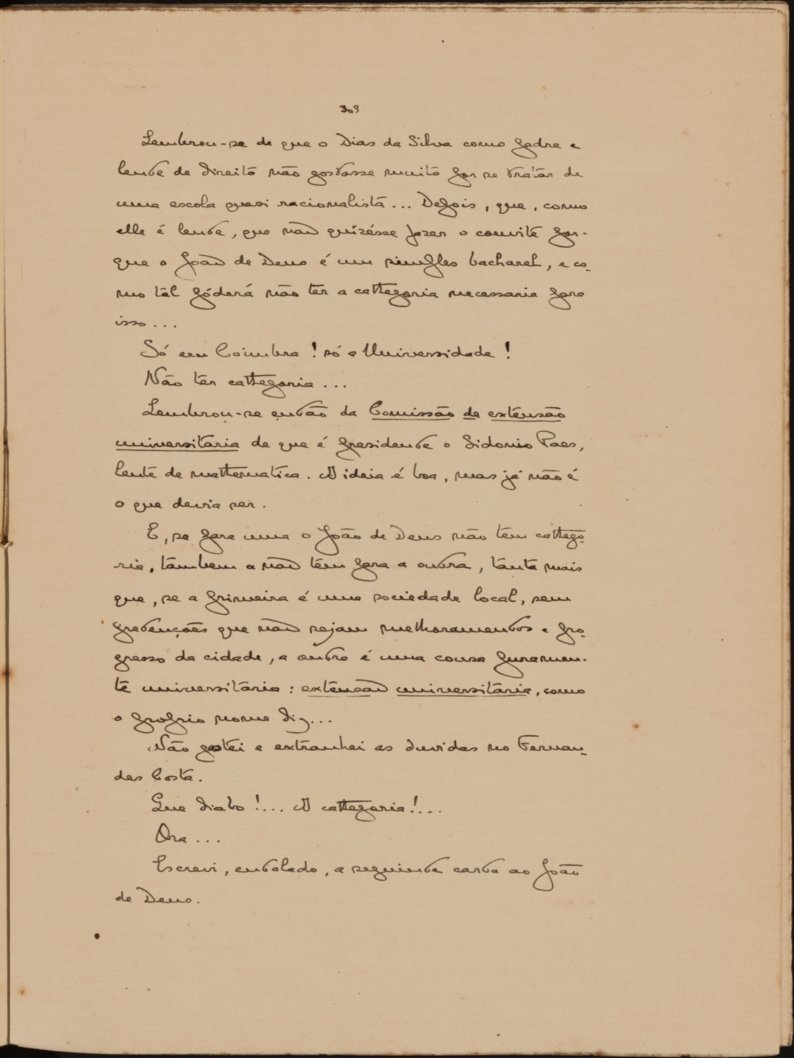 309
Lembrou-se de que o Dias da Silva como padre e
lente de direito não gostasse muito por se tratar de
uma escola quasi racionalista... Depois, que, como
elle é lente, que não quizésse fazer o convite por-
que o João de Deus é um simples bacharel, e co-
mo tal póderá não ter a cathegoria necessaria para
isso...
Só em Coimbra! só a Universidade!
Não ter cathegoria...
Lembrou-se então da Comissão de extensão
universitaria de que é presidente o Sidonio Paes,
lente de mathematica. A ideia é boa, mas já não é
o que devia ser.
E, se para uma o João de Deus não tem cathego-
ria, tambem a não tem para a outra, tanta mais
que, se a primeira é uma sociedade local, sem
pretenções que não sejam melhoramentos e pro-
gresso da cidade, a outra é uma cousa puramen-
te universitaria: extensão universitaria, como
o proprio nome diz...
Não gostei e extranhei as duvidas no Fernan-
des Costa.
Que diabo!... A cathegoria!...
Ora...
Escrevi, entalado, a seguinte carta ao João
de Deus.